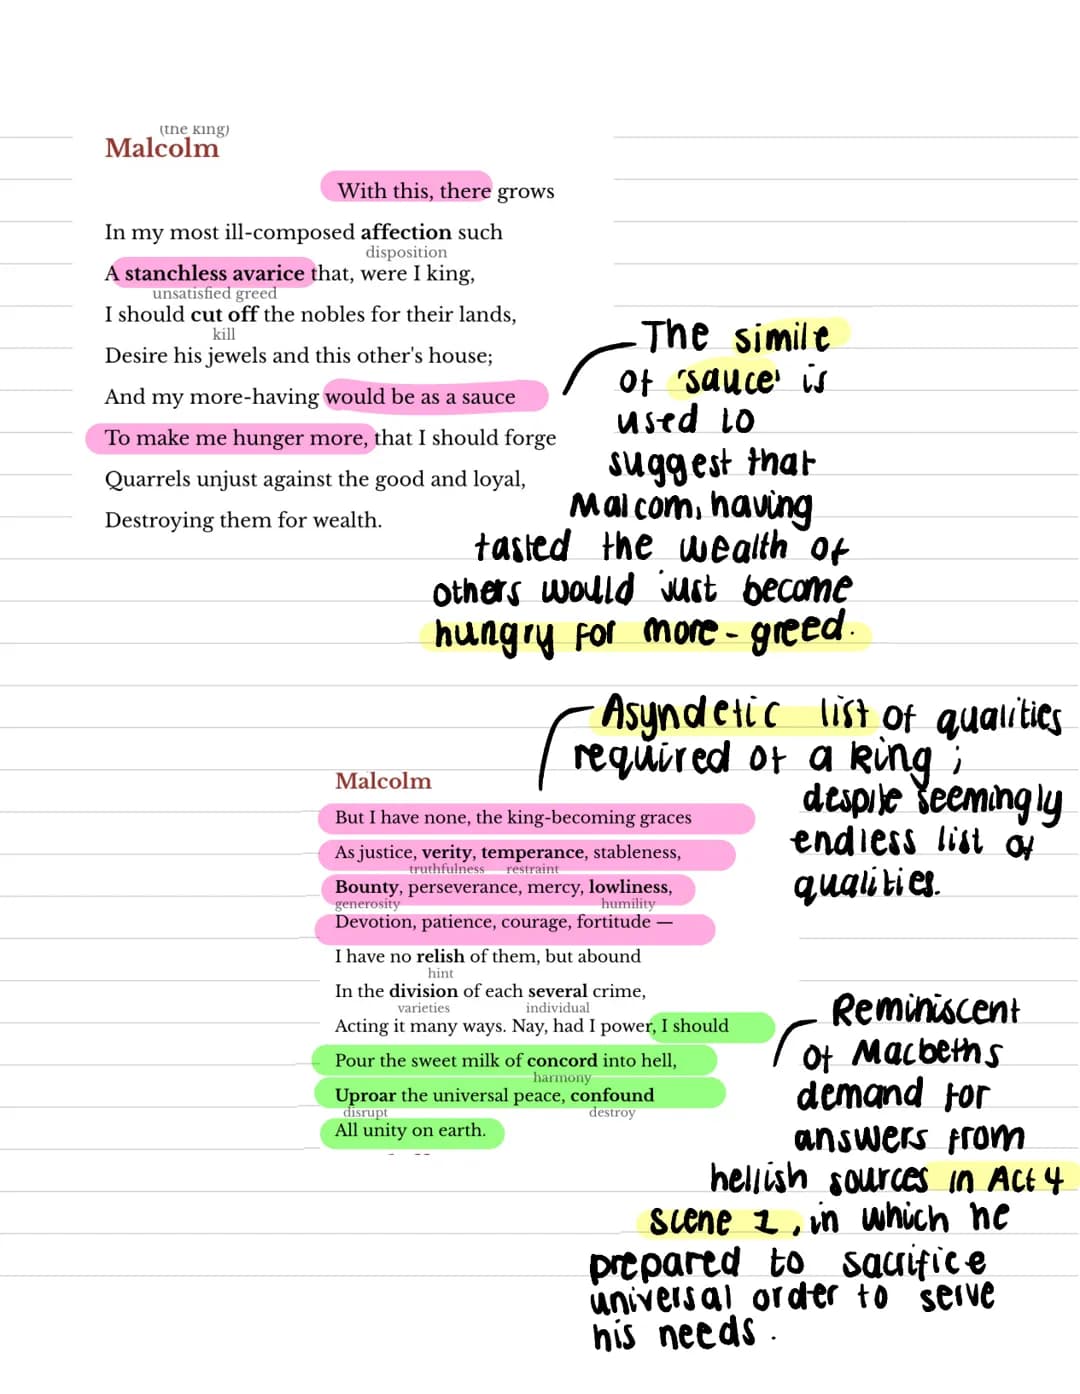 (the king)
Malcolm
With this, there grows
In my most ill-composed affection such
disposition
A stanchless avarice that, were I king,
unsatisfied greed
I should cut off the nobles for their lands,
kill
Desire his jewels and this other's house;
And my more-having would be as a sauce
To make me hunger more, that I should forge
Quarrels unjust against the good and loyal,
Destroying them for wealth.
The simile
of 'sauce' is
used to
suggest that
Malcom, having
tasted the wealth of
others would just become
hungry for more - greed.
Asyndetic list of qualities
required of a king ;
despite seemingly
endless list of
qualities.
Malcolm
But I have none, the king-becoming graces
As justice, verity, temperance, stableness,
truthfulness restraint
Bounty, perseverance, mercy, lowliness,
generosity humility
Devotion, patience, courage, fortitude —
I have no relish of them, but abound
hint
In the division of each several crime,
varieties individual
Acting it many ways. Nay, had I power, I should
Pour the sweet milk of concord into hell,
harmony
Uproar the universal peace, confound
disrupt destroy
All unity on earth.
Reminiscent
of Macbeths
demand for
answers from
hellish sources in Act 4
scene 1, in which he
prepared to sacrifice
universal order to serve
his needs .